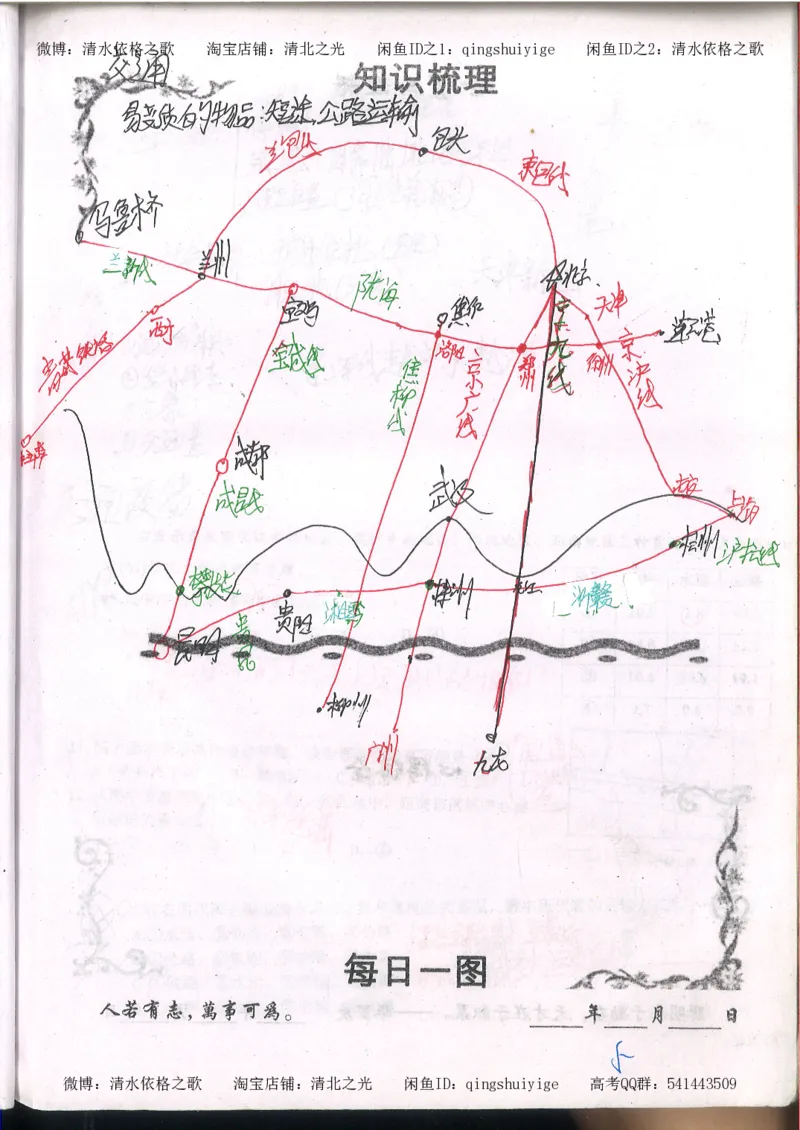 微博：清水依格之歌 淘宝店铺：清北之光 闲鱼ID之1：qingshuiyige 闲鱼ID之2：清水依格之歌
交通
知识梳理
易变质的物品：短途，公路运输
包头
乌鲁木齐
兰州
兰新线
宝鸡
陇海
焦
北京
天津
西宁
青藏铁路
宝成线
洛阳
焦柳线
京广线
郑州
京九线
徐州
京沪线
连云港
成都
成昆线
武汉
南京
上海
杭州
沪杭线
攀枝
贵阳
湘黔
株洲
浙赣
昆明
贵昆
柳州
广州
九龙
每日一图
人若有志，萬事可爲。
年 月 日
微博：清水依格之歌 淘宝店铺：清北之光 闲鱼ID：qingshuiyige 高考QQ群：541443509